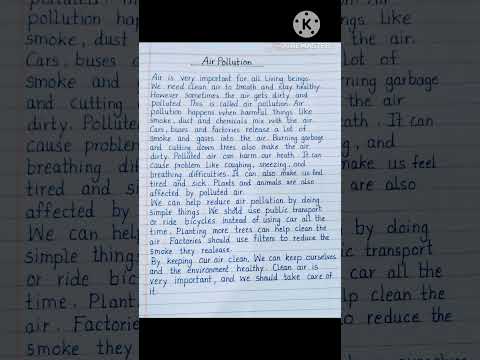 Air Pollution
Air is very important for all living beings.
We need clean air to breath and stay healthy.
However sometimes the air gets dirty and
polluted. This is called air pollution. Air
pollution happens when harmful things like
smoke, dust and chemicals mix with the air.
Cars, buses and factories release a lot of
smoke and gases into the air. Burning garbage
and cutting down trees also make the air
dirty. Polluted air can harm our heath. It can
cause problem like coughing, sneezing, and
breathing difficulties. It can also make us feel
tired and sick. Plants and animals are also
affected by polluted air.
We can help reduce air pollution by doing
simple things. We shold use public transport
or ride bicycles instead of using car all the
time. Planting more trees can help clean the
air. Factories should use filters to reduce the
smoke they realease.
By keeping our air clean, We can keep ourselves
and the environment healthy. Clean air is
very important, and we should take care of
it.